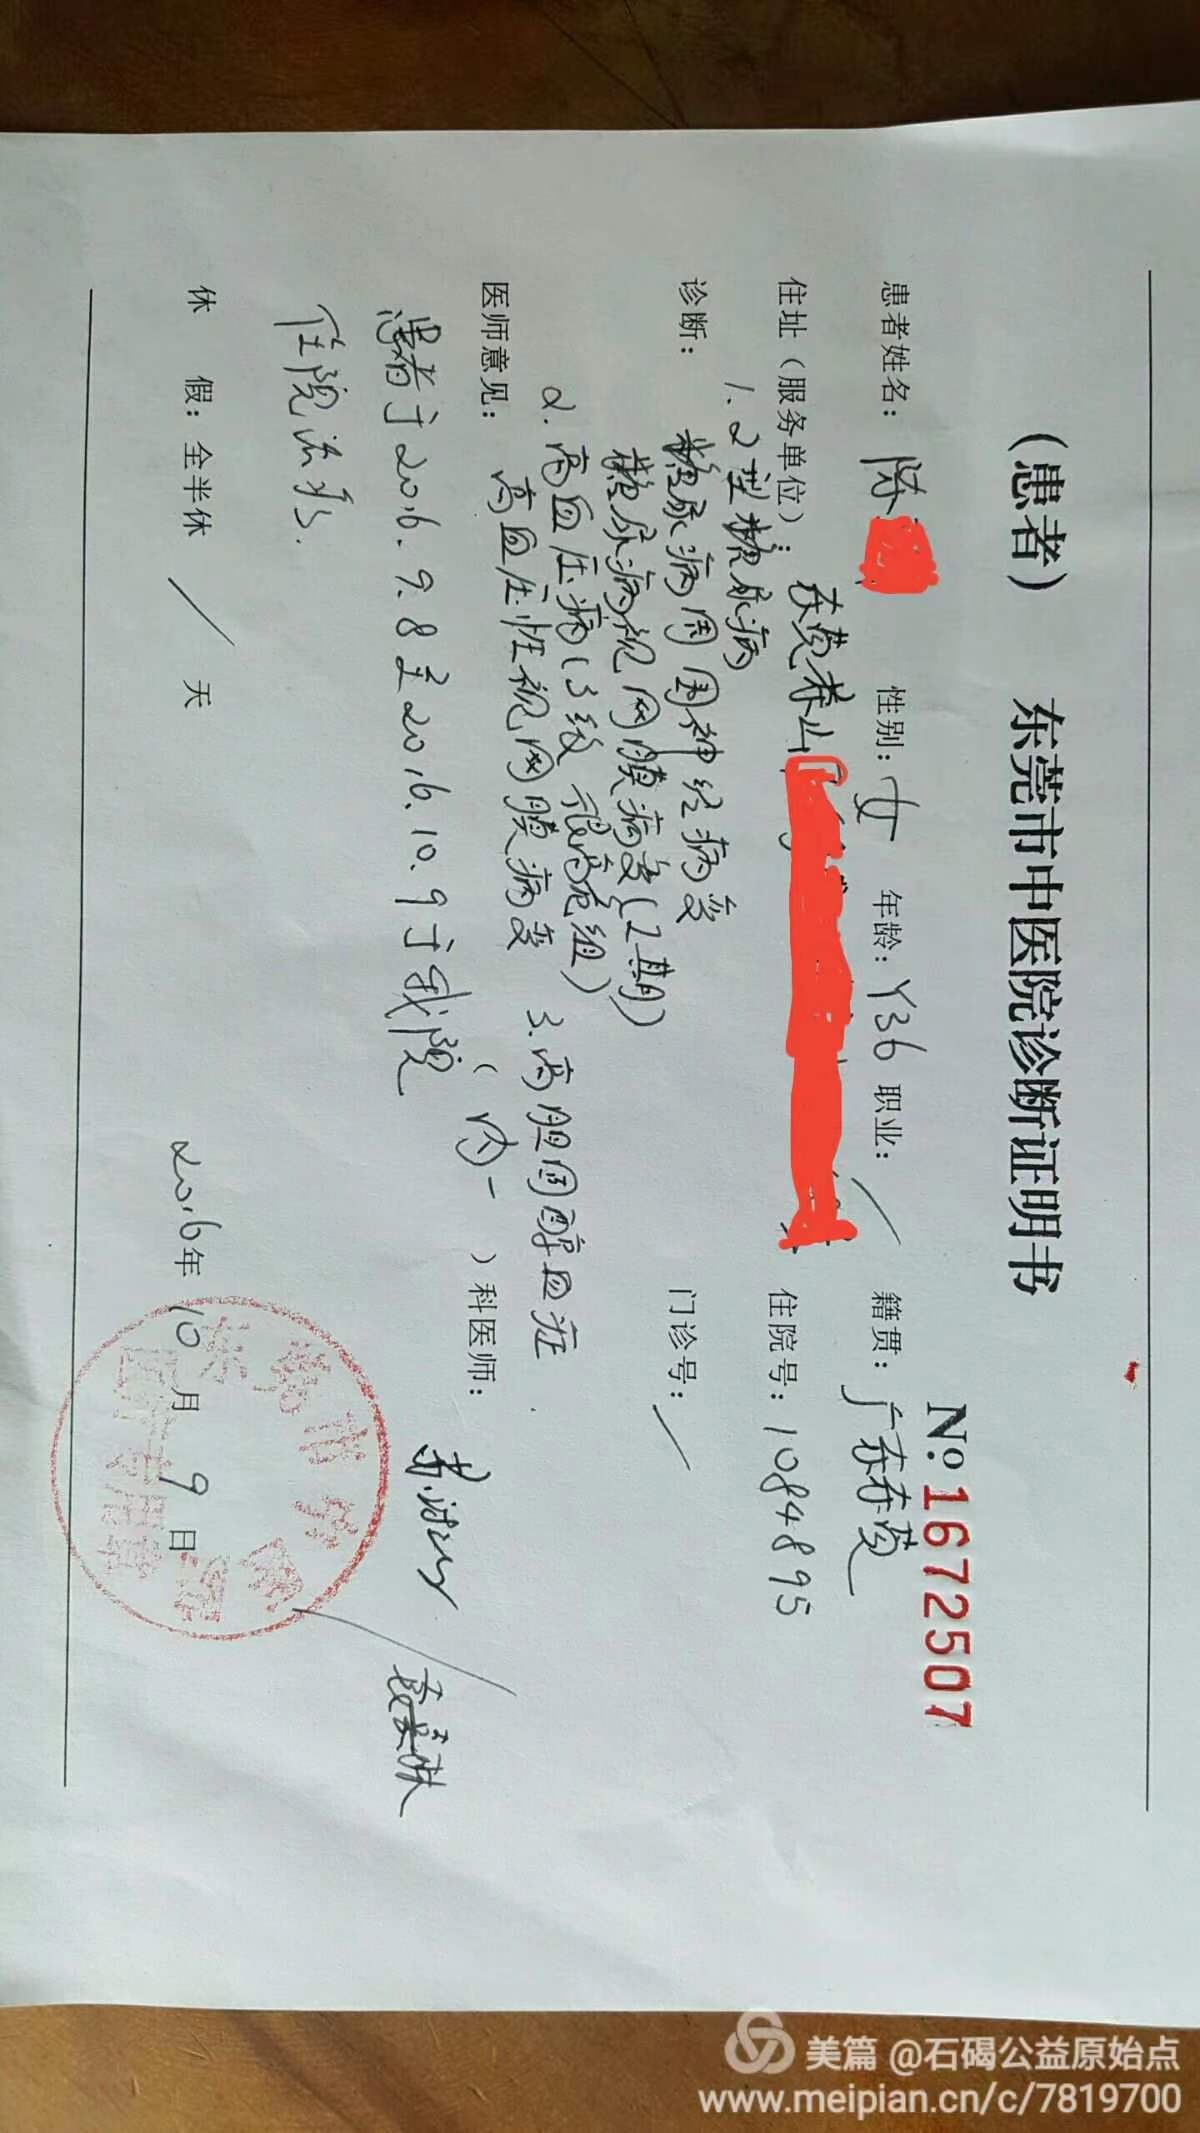 (患者) 东莞市中医院诊断证明书
№.1672507
患者姓名: 陈 性别: 女 年龄: Y36 职业: / 籍贯: 广东东莞
住址(服务单位): 东莞茶山 住院号: 1084895
诊断: 门诊号: /
1. 2型糖尿病
糖尿病周围神经病变
糖尿病视网膜病变(2期)
2. 高血压病(3级 很高危组) 3. 高胆固醇血症
高血压性视网膜病变
医师意见: (内一)科医师:
患者于2016.9.8至2016.10.9于我院
住院治疗.
休 假: 全半休 / 天
2016年10月9日
美篇 @石碣公益原始点
www.meipian.cn/c/7819700